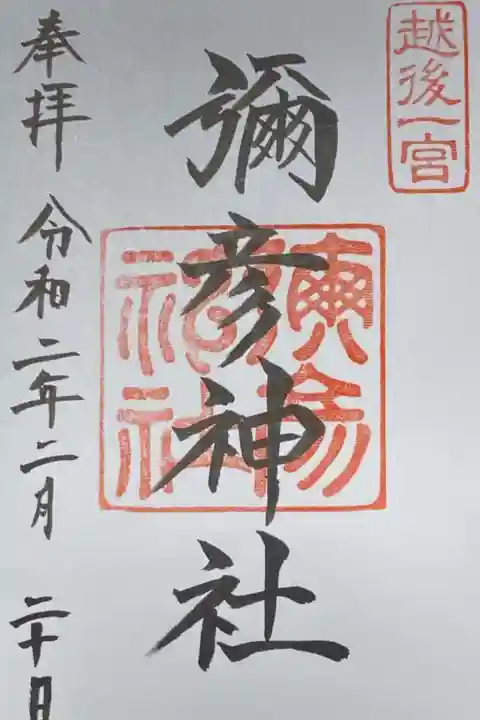 越後一宮
彌彦神社
奉拝 令和二年二月 二十日